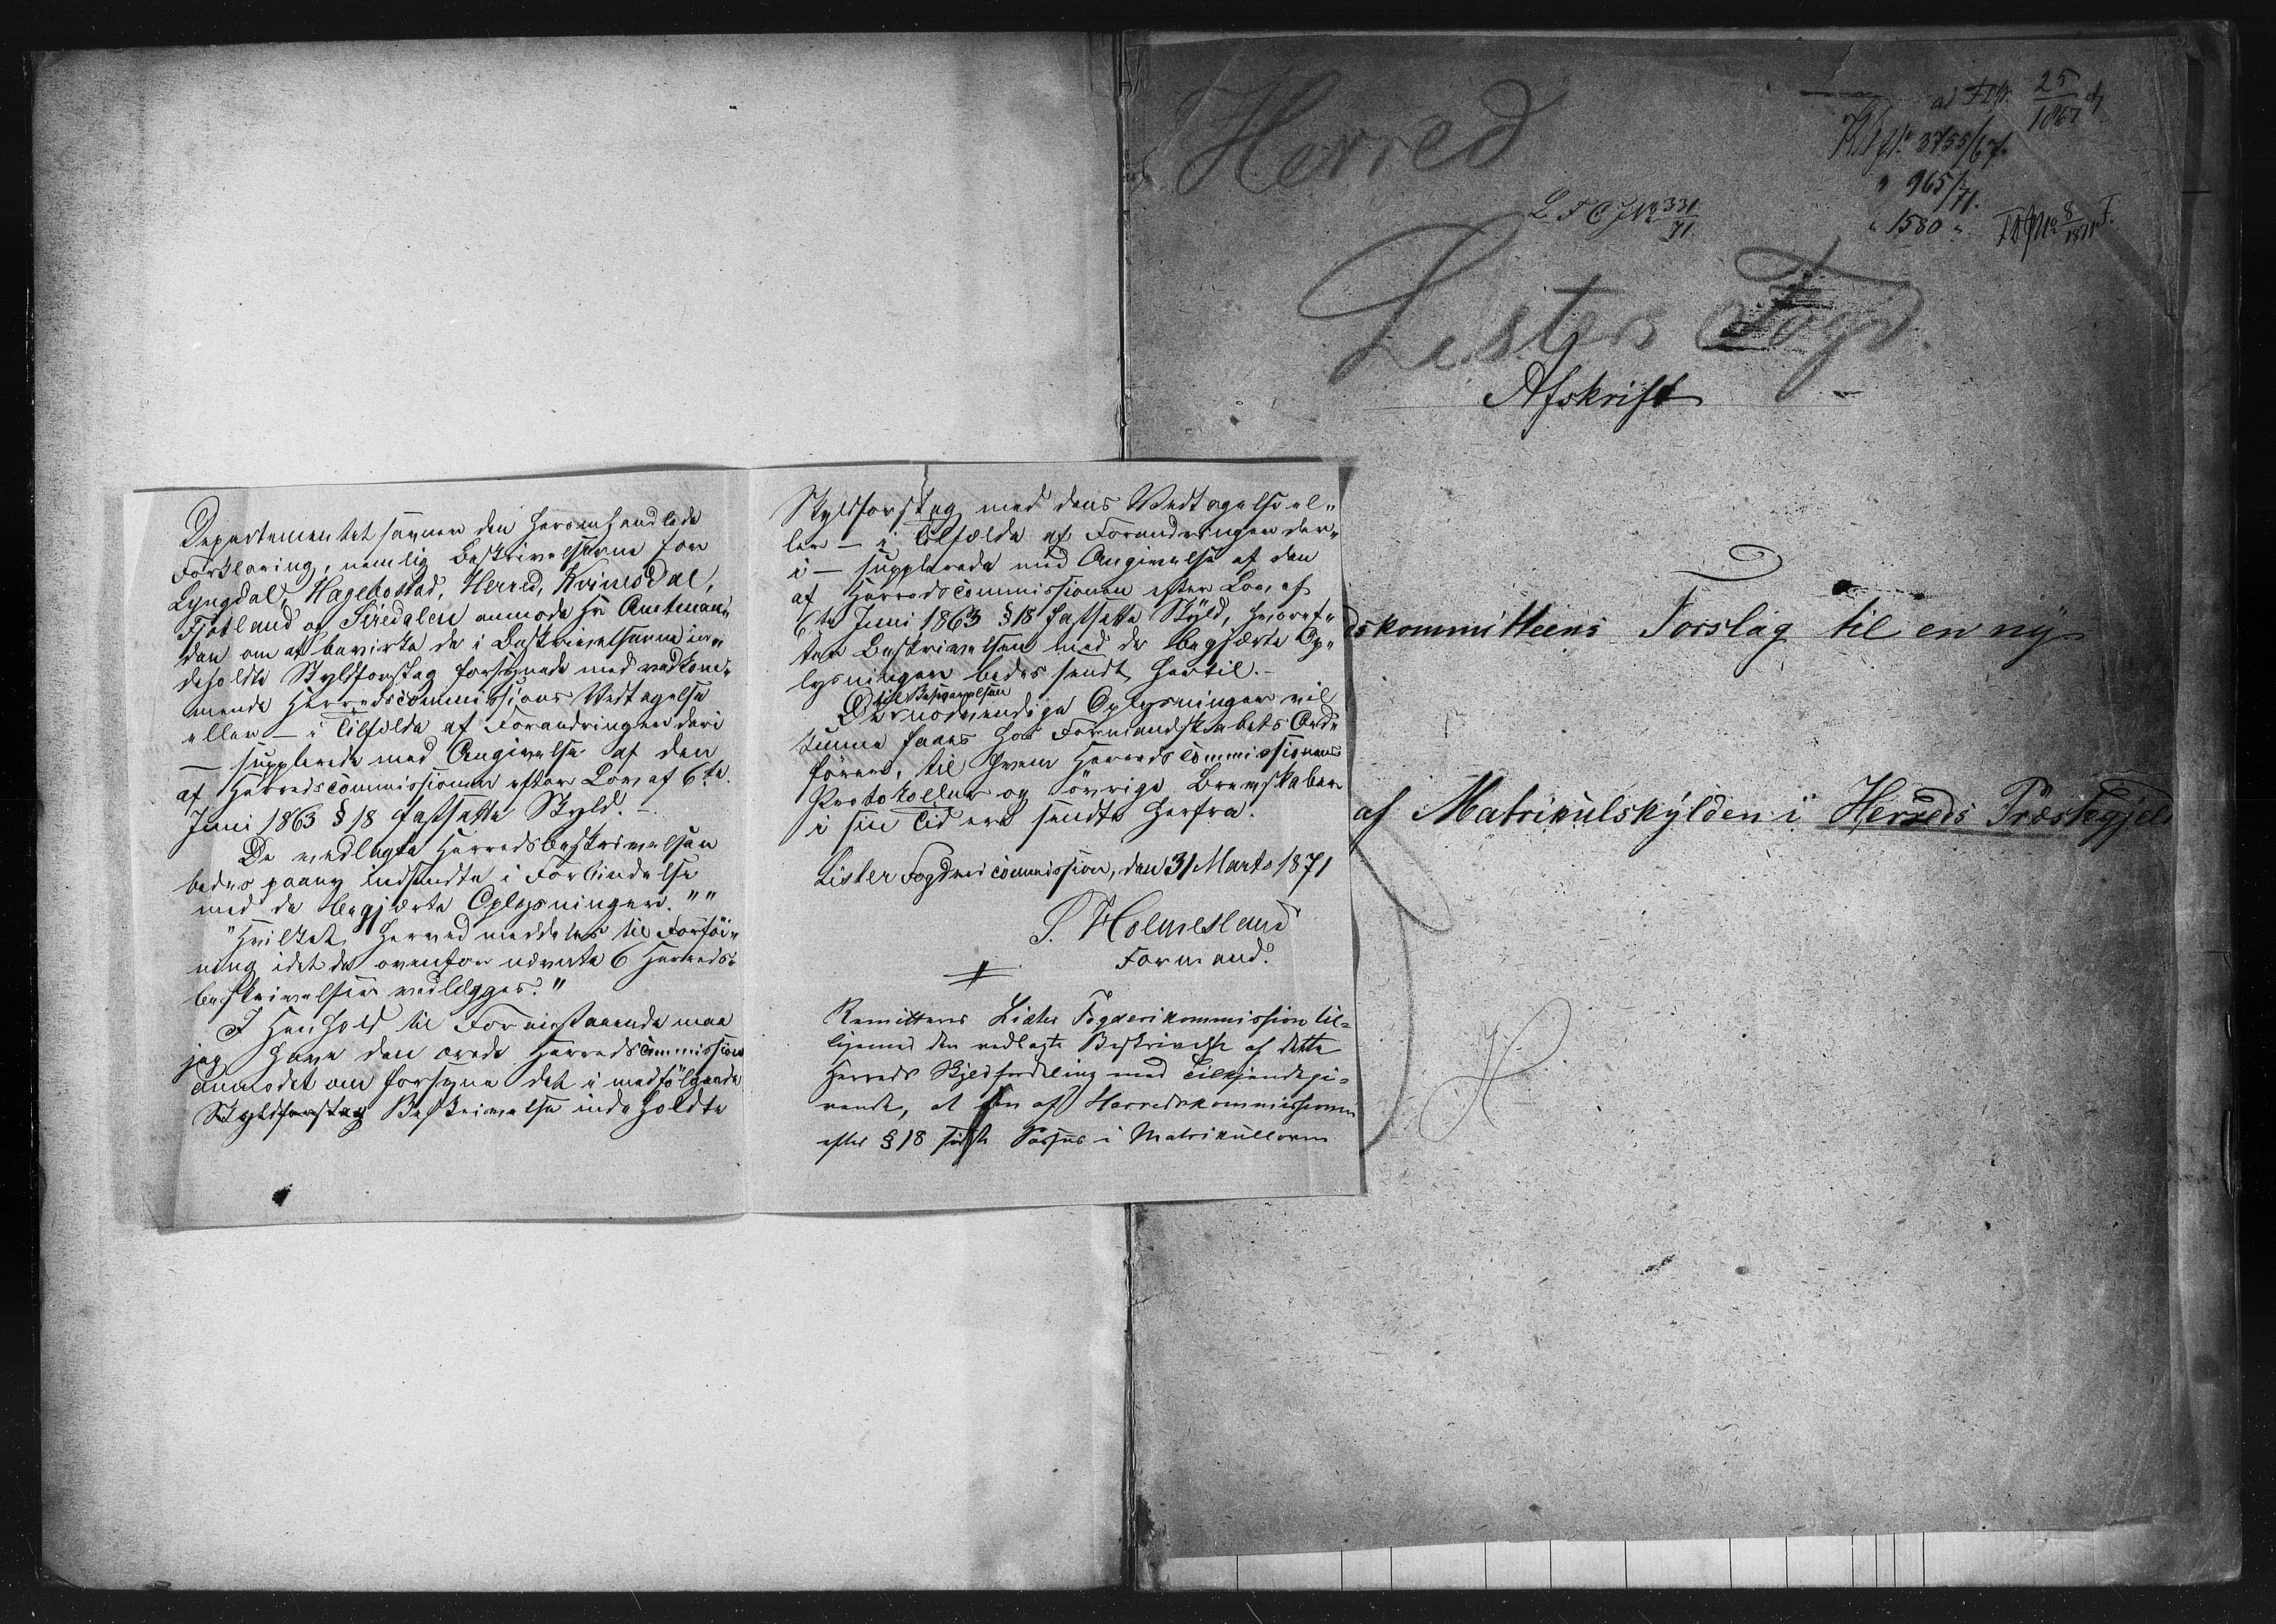 Departementet savner den heromhandlede
Forklaring, nemlig Beskrivelserne for
Lyngdal, Hagebostad, Herred, Kvinesdal,
Fjotland og Siredalen anmodes Hr Amtman„
den om at bevirke de i Beskrivelserne in„
deholdte Skyldforslag forsynede med vedkom„
mende Herredscommissions Vedtagelse
eller – i Tilfælde af Forandringer deri
– supplerede med Angivelse af den
af Herredscommissionen efter Lov af 6te
Juni 1863 § 18 fastsatte Skyld. –
De vedlagte Herredsbeskrivelser
bedes paany indsendte i Forbindelse
med de begjærte Oplysninger.""
"Hvilket herved meddeles til Forføi„
ning idet de ovenfor nævnte 6 Herreds„
beskrivelser vedlægges."
I Henhold til Foranstaaende maa
jeg have den ærede Herredscommission
anmodet om forsyne det i medfølgende
Skyldforslag Beskrivelse indeholdte
Skyldforslag med dens Vedtagelse el„
ler – i Tilfælde af Forandringer der„
i – supplerede med Angivelse af den
af Herredscommissionen efter Lov af
6te Juni 1863 § 18 fastsatte Skyld, hvoref„
ter Beskrivelsen med de begjærte Op„
lysninger bedes sendt hertil. –
til Besvarelsen
De nødvendige Oplysninger vil
kunne faaes hos Formandskabets Ord„
fører, til hvem Herredscommissionens
Protokoller og øvrige Brevskaber
i sin Tid ere sendte herfra.
Lister Fogdericommission, den 31 Marts 1871
S. Holmesland
Formand.
Remitteres Lister Fogderikommission til=
ligemed den vedlagte Beskrivelse af dette
Herreds Skyldfordeling med Tilkjendegi=
vende, at den af Herredskommissionen
efter § 18 første Passus i Matrikulloven
Herred
ad FDJr. 25/1867
JNr. 3755/67.
" 965/71.
" 1580 "
FDJNo 8/1871 F.
L F C JNo 331/71
Listers Fogd.
Afskrift
dskommitteens Forslag til en ny
af Matrikulskylden i Herreds Præstegjeld